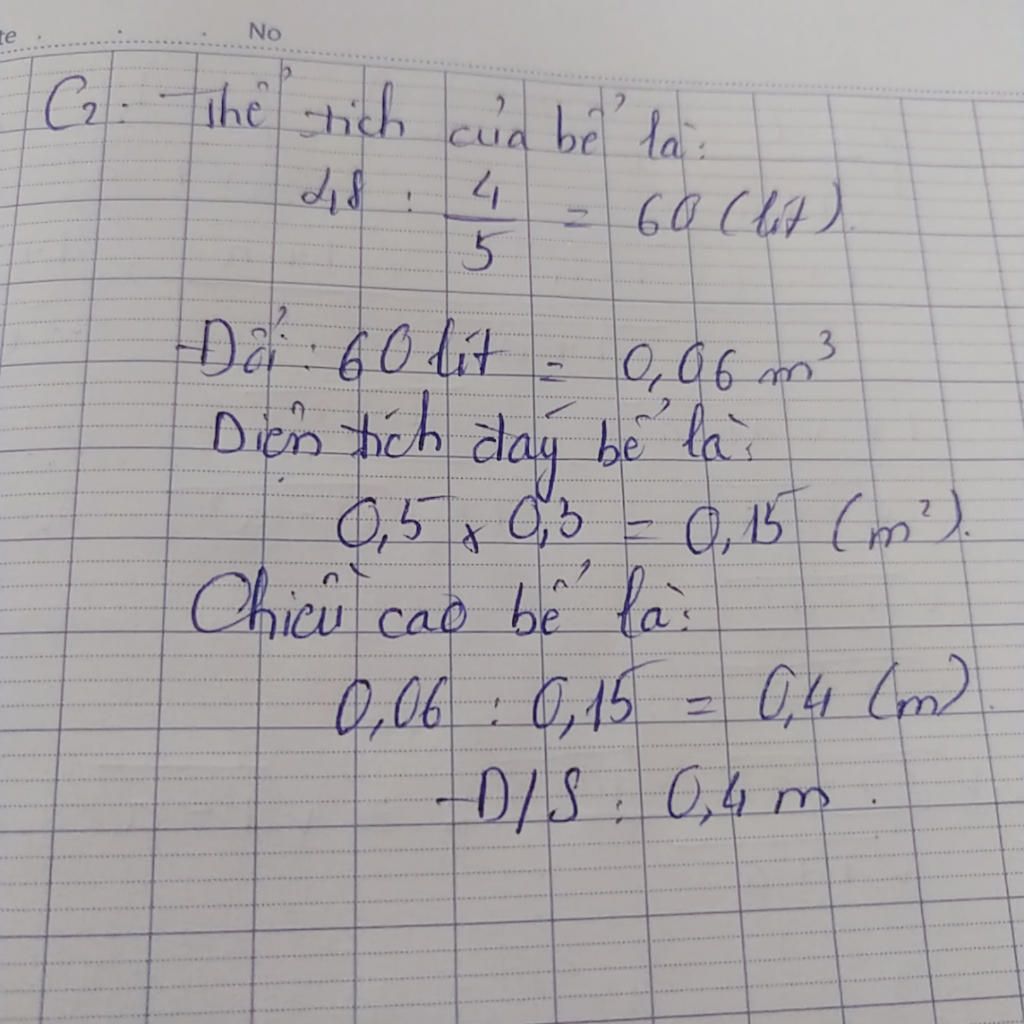 te No
C2: Thể tích của bể là:
48 : 4/5 = 60 (lít).
Đổi: 60 lít = 0,06 m³
Diện tích đáy bể là:
0,5 x 0,3 = 0,15 (m²).
Chiều cao bể là:
0,06 : 0,15 = 0,4 (m).
Đ/S : 0,4 m.